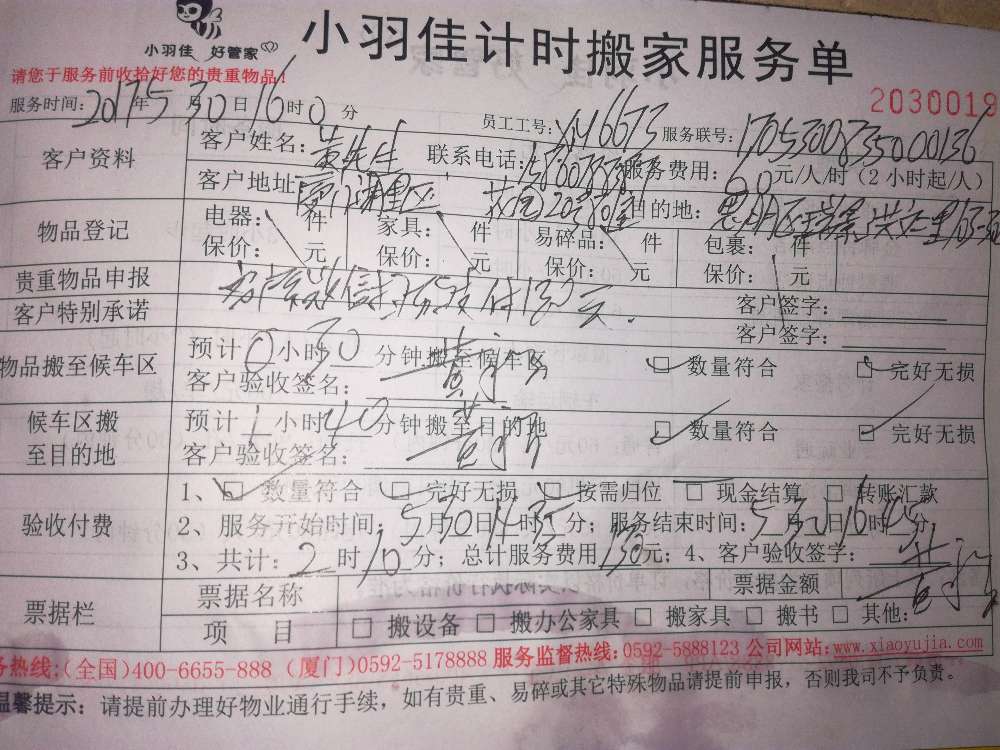 小羽佳 好管家
小羽佳计时搬家服务单
请您于服务前收拾好您的贵重物品!
2030019
服务时间: 2017年5月30日16时0分 员工工号: XM6673 服务联号: 17053008350000136
客户资料
客户姓名: 黄先生 联系电话: 服务费用: 60元/人/时(2小时起/人)
客户地址: 厦门湖里区 目的地: 思明区
物品登记
电器: 件 家具: 件 易碎品: 件 包裹: 件
保价: 元 保价: 元 保价: 元 保价: 元
贵重物品申报 客户签字:
客户特别承诺 客户签字:
物品搬至候车区
预计0小时30分钟搬至候车区 数量符合 完好无损
客户验收签名:
候车区搬至目的地
预计1小时40分钟搬至目的地 数量符合 完好无损
客户验收签名:
验收付费
1、 数量符合 完好无损 按需归位 现金结算 转账汇款
2、服务开始时间: 5月30日14时35分; 服务结束时间: 5月30日16时45分;
3、共计: 2时10分; 总计服务费用130元; 4、客户验收签字:
票据栏
票据名称 票据金额
项 目 搬设备 搬办公家具 搬家具 搬书 其他:
务热线:(全国)400-6655-888 (厦门)0592-5178888 服务监督热线:0592-5888123 公司网站:www.xiaoyujia.com
温馨提示: 请提前办理好物业通行手续，如有贵重、易碎或其它特殊物品请提前申报，否则我司不予负责。